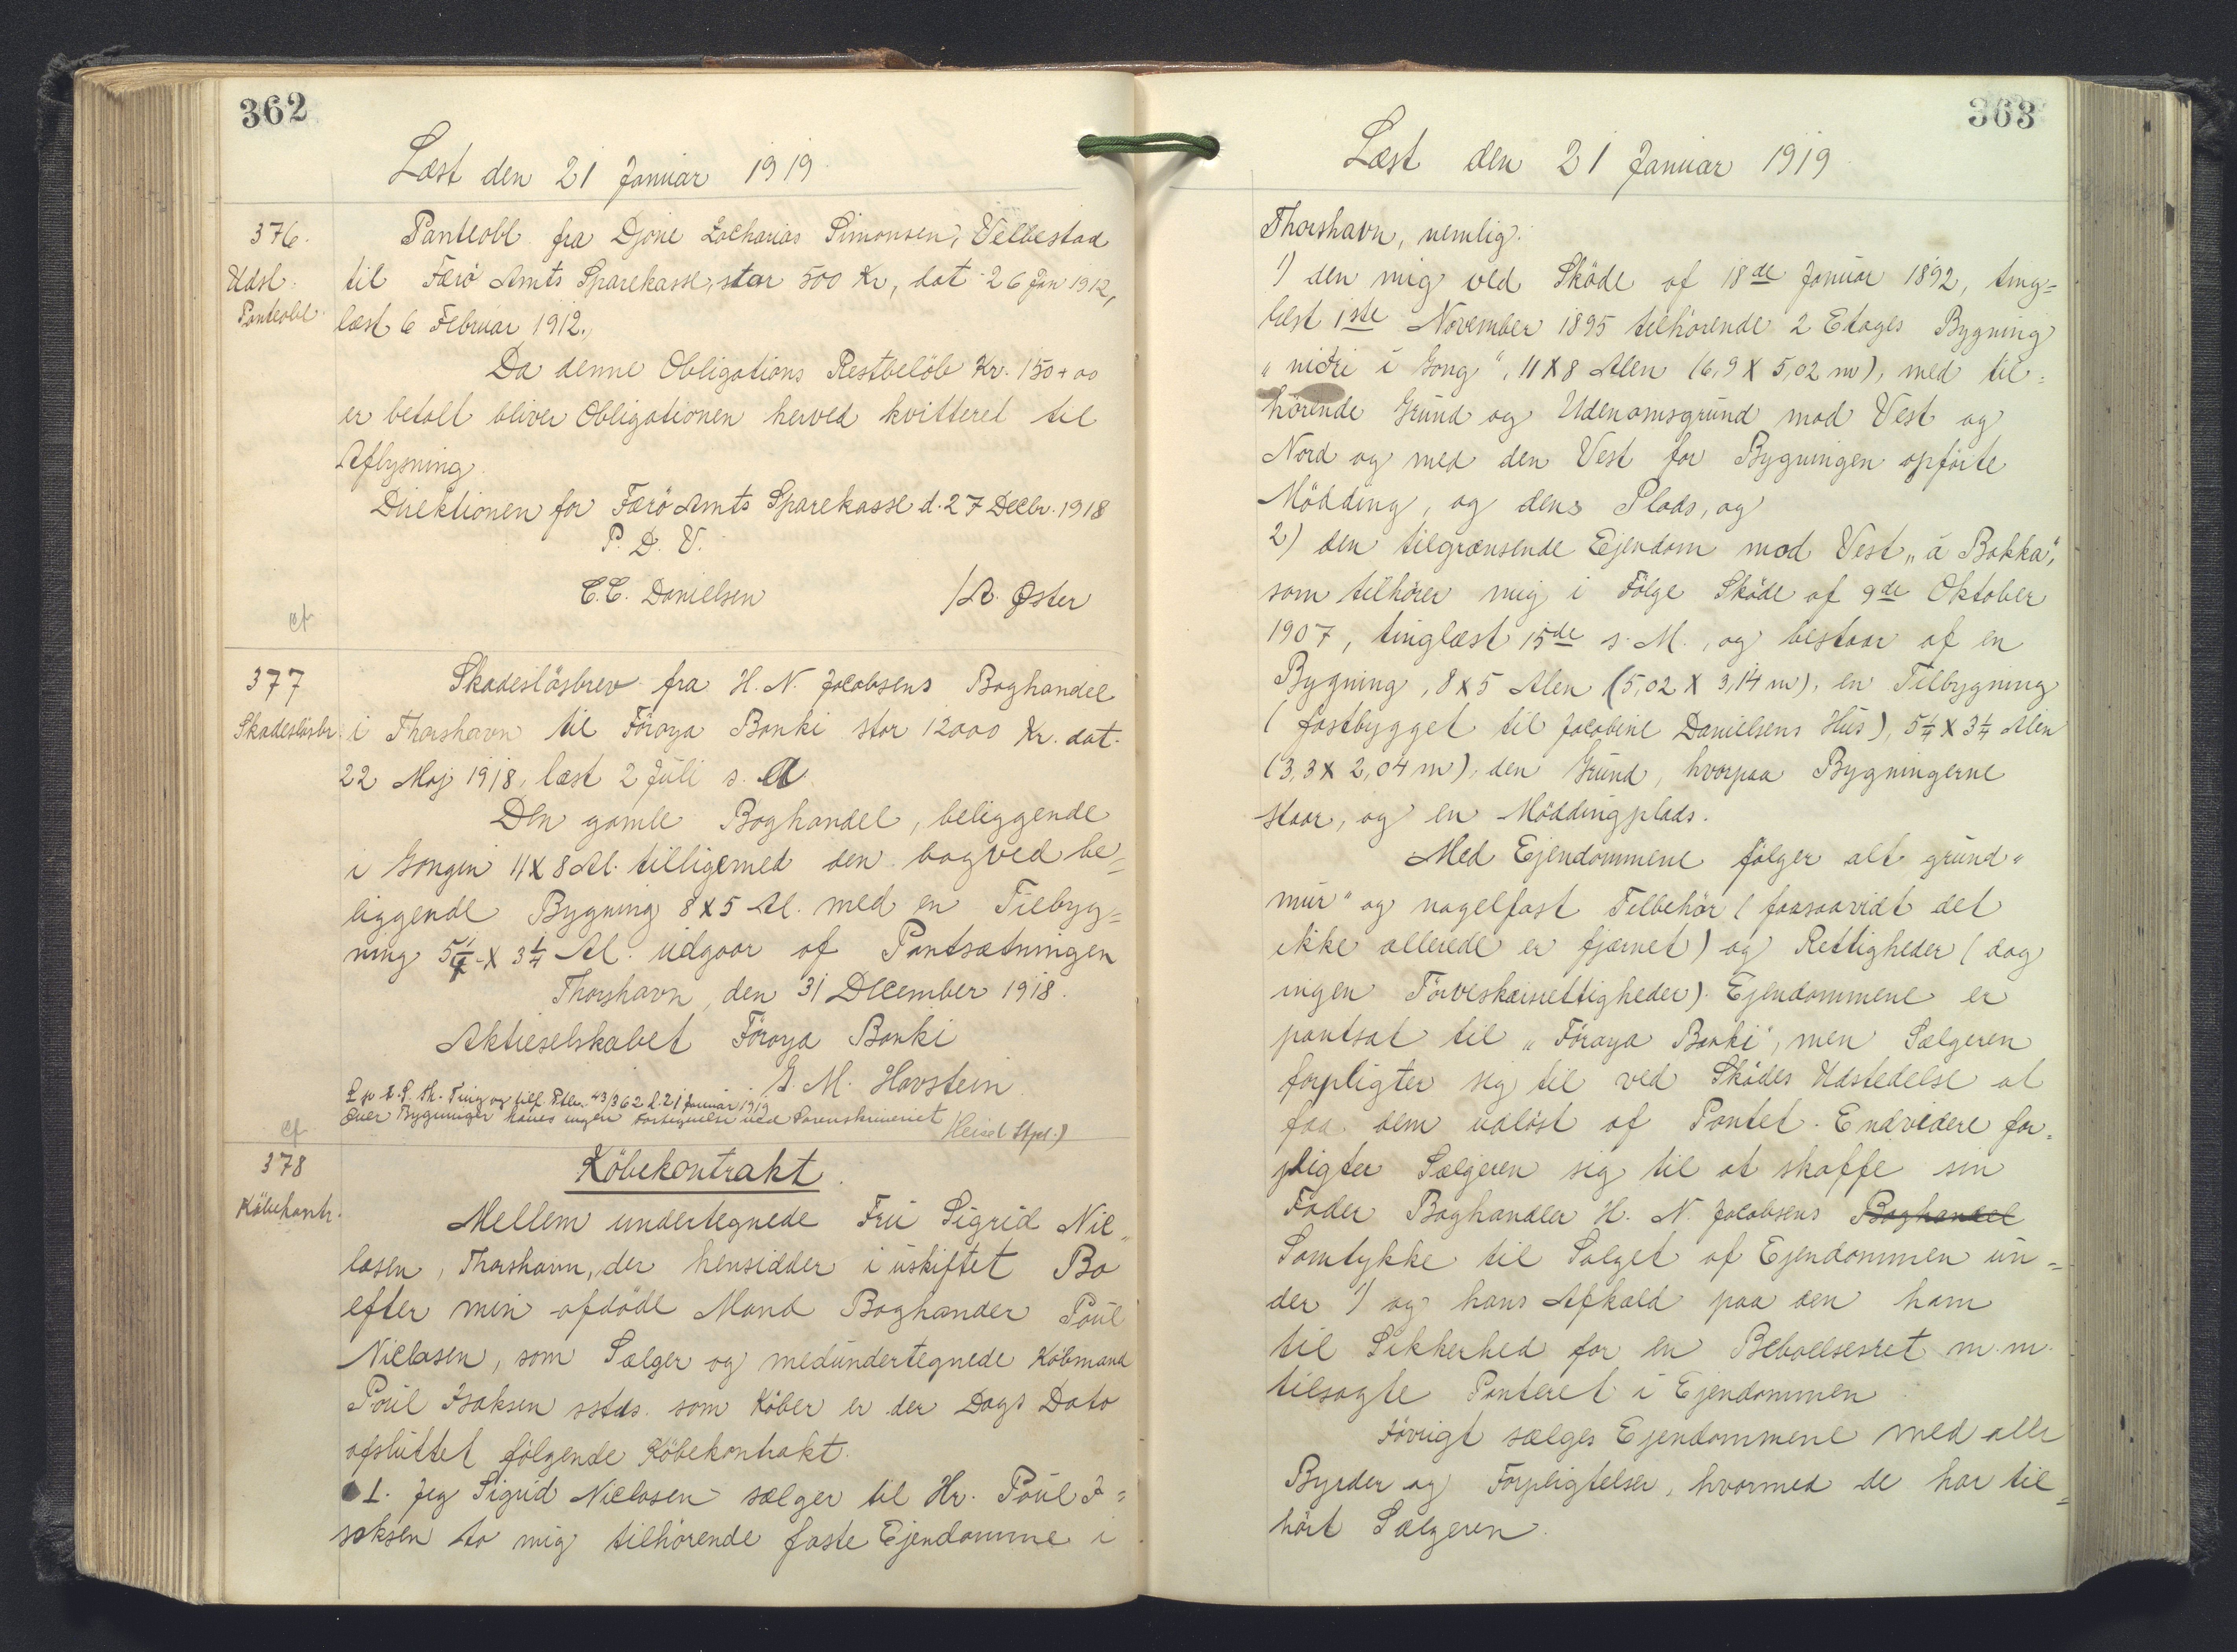 362
Læst den 21 Januar 1919
376.
Udsl.
Panteobl.
Panteobl. fra Djóne Zacharias Simonsen, Velbestad
til Færö Amts Sparekasse, stor 500 Kr, dat 26 Jan 1912,
læst 6 Februar 1912.
Da denne Obligations Restbelöb Kr. 150 + 00
er betalt bliver Obligationen herved kvitteret til
Aflysning.
Direktionen for Færö Amts Sparekasse d. 27 Decbr. 1918
P. D. V.
C.C. Danielsen / A. Øster
cf
377
Skadeslösbr.
Skadeslösbrev fra H. N. Jacobsens Boghandel
i Thorshavn til Föroya Banki stor 12000 Kr. dat.
22 Maj 1918, læst 2 Juli s. A.
Den gamle Boghandel, beliggende
i Gongin 11 X 8 Al. tilligemed den bagved be=
liggende Bygning 8 X 5 Al. med en Tilbyg=
ning 5¼ X 3¼ Al. udgaar af Pantsætningen
Thorshavn, den 31 December 1918.
Aktieselskabet Föroya Banki
J. M. Havstein
Ting og 43/362 d. 21 Januar 1919
Over Bygninger haves ingen Fortegnelse ved Sorenskriveriet
cf
378
Köbekontr.
Köbekontrakt.
Mellem undertegnede Frú Sigrid Nic=
lasen, Thorshavn, der hensidder i uskiftet Bo
efter min afdöde Mand Boghander Poul
Niclasen, som Sælger og medundertegnede Köbmand
Poul Isaksen sstds. som Köber er der Dags Dato
afsluttet fölgende Köbekontrakt.
1. Jeg Sigrid Niclasen sælger til Hr. Poul I=
saksen to mig tilhörende faste Ejendomme i
363
Læst den 21 Januar 1919
Thorshavn, nemlig:
1) den mig ved Sköde af 18de Januar 1892, ting=
læst 1ste November 1895 tilhörende 2 Etages Bygning
"niðri i Gong", 11 X 8 Alen (6,9 X 5,02 m), med til=
hörende Grund og Udenomsgrund mod Vest og
Nord og med den Vest for Bygningen opförte
Mödding, og dens Plads, og
2) den tilgrænsende Ejendom mod Vest "á Bakka",
som tilhörer mig i Fölge Sköde af 9de Oktober
1907, tinglæst 15de s. M., og bestaar af en
Bygning, 8 X 5 Alen (5,02 X 3,14 m), en Tilbygning
(fastbygget til Jacobine Danielsens Hus), 5¼ X 3¼ Alen
(3,3 X 2,04 m), den Grund, hvorpaa Bygningerne
staar, og en Möddingplads.
Med Ejendommene fölger alt grund"
mur" og nagelfast Tilbehör (forsaavidt det
ikke allerede er fjærnet) og Rettigheder (dog
ingen Törveskærsrettigheder). Ejendommene er
pantsat til "Föroya Banki", men Sælgeren
forpligter sig til ved Sködes Udstedelse at
faa dem udlöst af Pantet. Endvidere for=
pligter Sælgeren sig til at skaffe sin
Fader Boghandler H. N. Jacobsens Boghandel
Samtykke til Salget af Ejendommen un=
der 1) og hans Afkald paa den ham
til Sikkerhed for en Beboelsesret m. m.
tilsagte Panteret i Ejendommen
Iövrigt sælges Ejendommene med alle
Byrder og Forpligtelser, hvormed de har til=
hört Sælgeren.